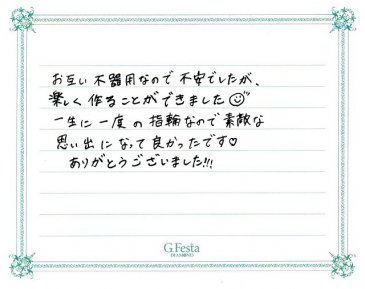 お互い不器用なので不安でしたが、
楽しく作ることができました
一生に一度の指輪なので素敵な
思い出になって良かったです♡
ありがとうございました!!!
G.Festa
DIAMOND